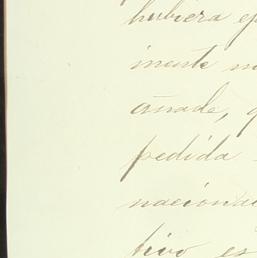 hubiera ej
mente m
añade, q
pedida
naciona
tivo es